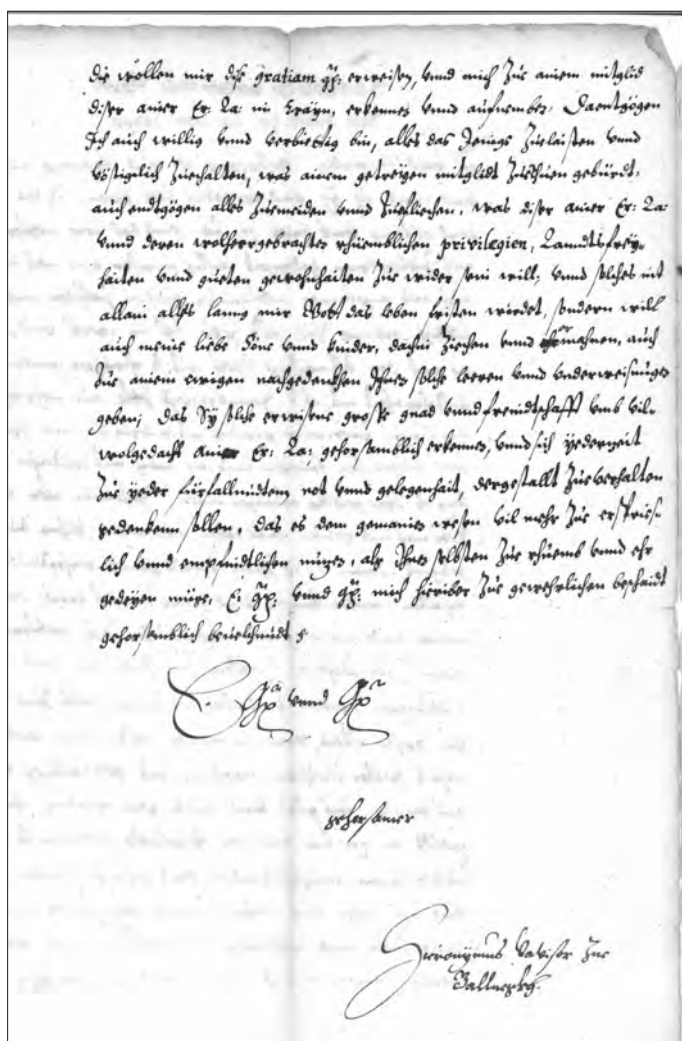 die wollen mir dise gratiam gg: erweisen, vnnd mich zue ainem mitglid
diser ainer Er: La: in Crayn, erkennen vnnd aufnemben, Daentgögen
Ich auch willig vnnd verbiettig bin, alles das Jenige zuelaisten vnnd
vöstigelich zuehalten, was ainem getreyen mitglidt zuethuen gebürdt,
auch endtgögen alles zuemeiden vnnd zuefliechen, was diser ainer Er: La:
vnnd deren wolheergebrachten rhüemblichen privilegien, Lanndtsfrey-
haiten vnnd gueten gewohnhaiten zue wider sein will, vnnd solches nit
allain alles lanng mir Gott das leben fristen wierdet, sondern will
auch meine liebe Söne vnnd kinder, dahin ziechen vnnd ermahnen, auch
zue ainem ewigen nachgedenkhen Ihnen solche leeren vnnd vnderweisungen
geben, das Sy solche erwisene grosse gnad vnnd freindtschafft vmb vil-
wolgedacht ainer Er: La: gehorsamblich erkennen, vnnd sich yederzeit
zue yeder fürfallendten not vnnd gelegenhait, dergestallt zueverhalten
gedenkhen sollen, das es dem gemainen wesen vil mehr zue erspries-
lich vnnd empfindtlichen nuzen, als Ihnen selbsten zue rhuemb vnnd ehr
gedeyen müge, E: gg: vnnd gg: mich hieriber zue gewehrlichen beschaidt
gehorsamblich beuelchendt
E. Gg vnnd Gg
gehorsamer
Hieronymus zue